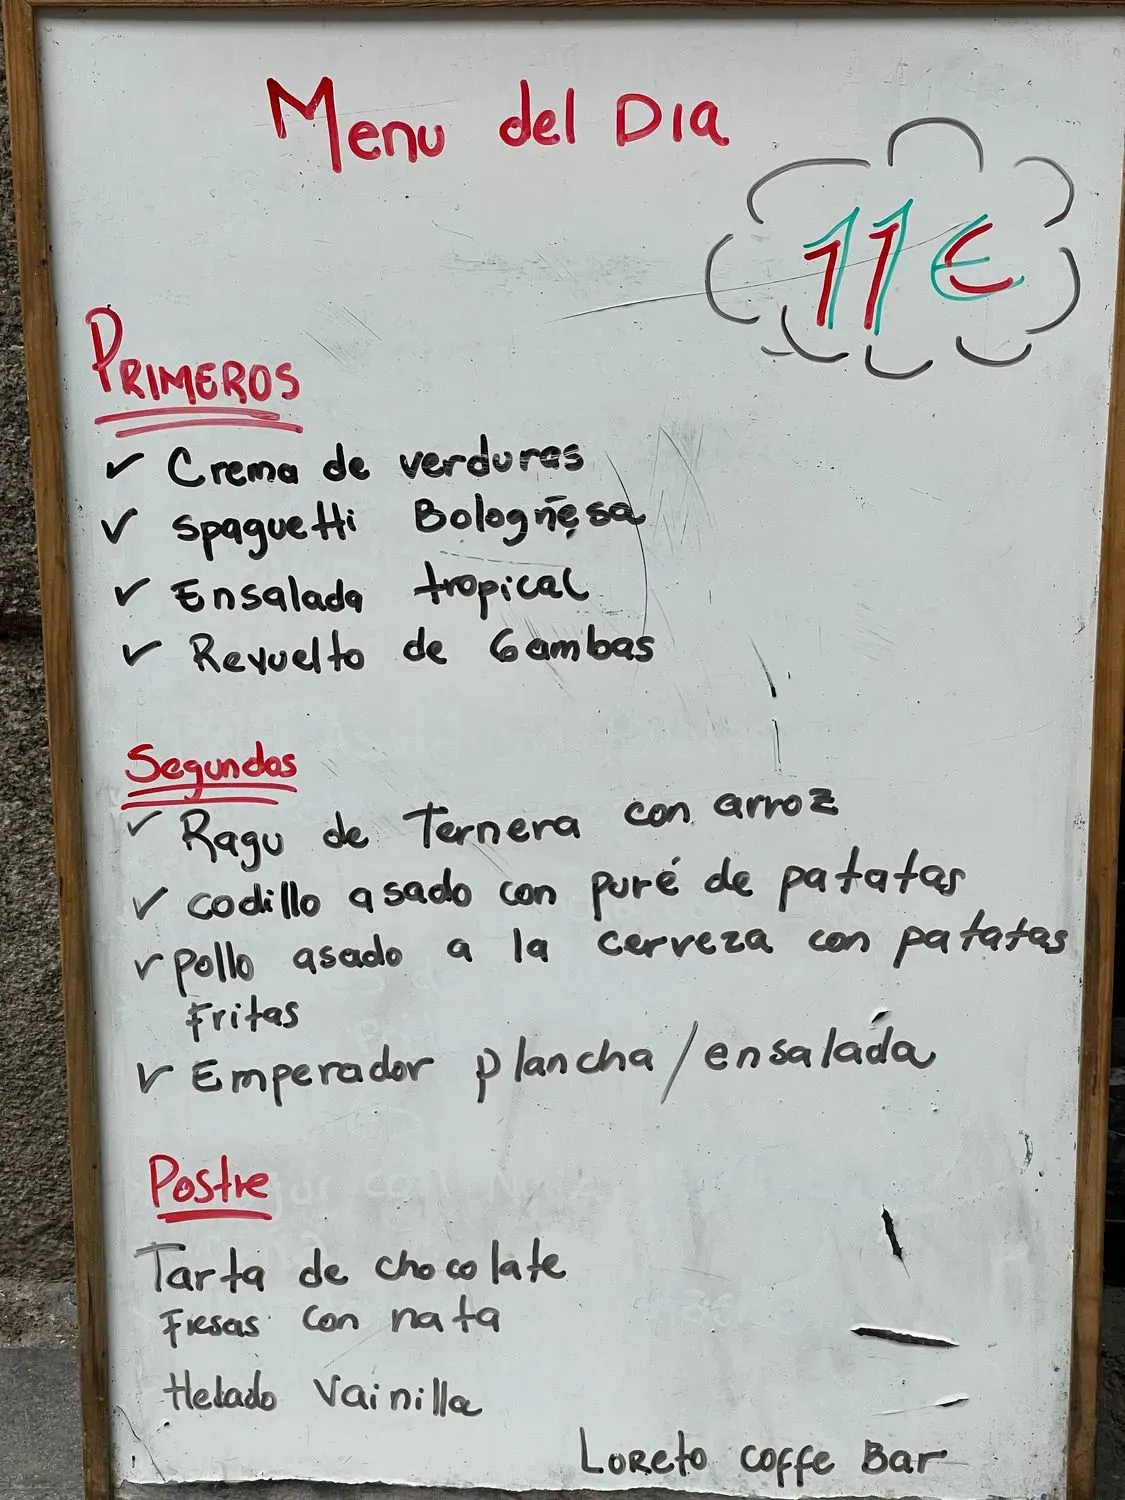 Menu del Dia
11€
PRIMEROS
✓ Crema de verduras
✓ spaguetti Bologñesa
✓ Ensalada tropical
✓ Revuelto de Gambas
Segundos
✓ Ragu de Ternera con arroz
✓ codillo asado con puré de patatas
✓ pollo asado a la cerveza con patatas
Fritas
✓ Emperador plancha/ensalada
Postre
Tarta de chocolate
Fresas con nata
Helado Vainilla
Loreto coffe Bar